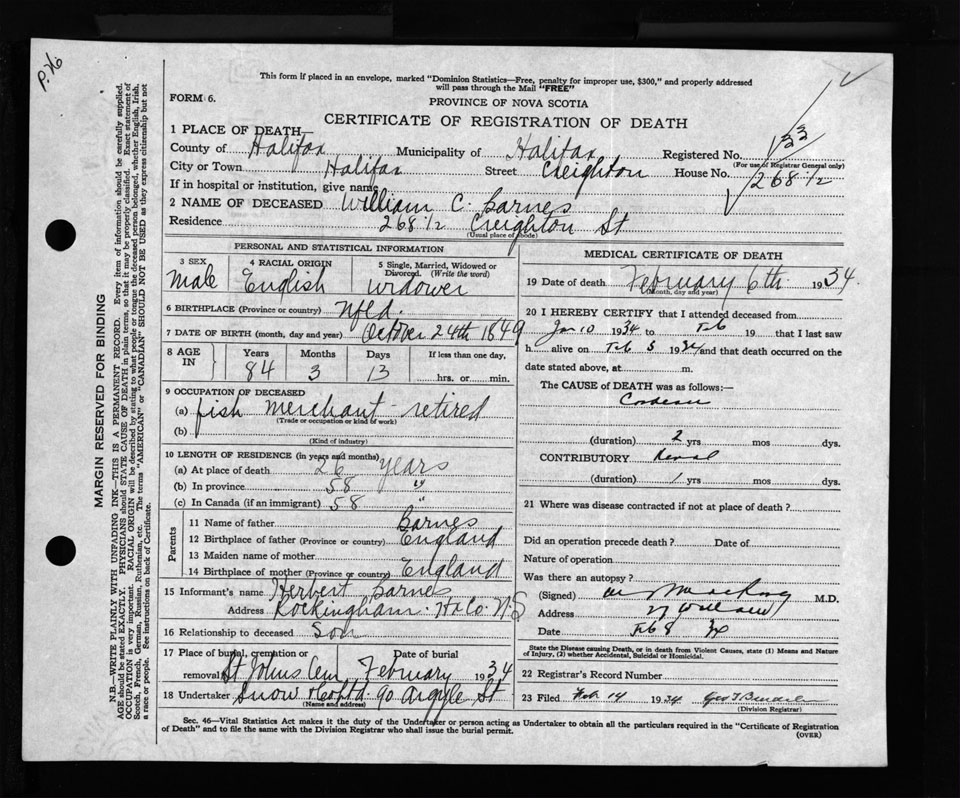 P. 76
This form if placed in an envelope, marked "Dominion Statistics—Free, penalty for improper use, $300," and properly addressed
will pass through the Mail "FREE"
FORM 6.
PROVINCE OF NOVA SCOTIA
CERTIFICATE OF REGISTRATION OF DEATH
1 PLACE OF DEATH—
County of Halifax Municipality of Halifax Registered No. 133
(For use of Registrar General only)
City or Town Halifax Street Creighton House No. 268 1/2
If in hospital or institution, give name
2 NAME OF DECEASED William C. Barnes
Residence 268 1/2 Creighton St
(Usual place of abode)
PERSONAL AND STATISTICAL INFORMATION
3 SEX 4 RACIAL ORIGIN 5 Single, Married, Widowed or Divorced. (Write the word)
Male English widower
6 BIRTHPLACE (Province or country) Nfld.
7 DATE OF BIRTH (month, day and year) October 24th 1849
8 AGE IN Years Months Days If less than one day,
84 3 13 hrs. or min.
9 OCCUPATION OF DECEASED
(a) fish merchant retired
(Trade or occupation or kind of work)
(b)
(Kind of industry)
10 LENGTH OF RESIDENCE (in years and months)
(a) At place of death 26 years
(b) In province 58 "
(c) In Canada (if an immigrant) 58 "
Parents
11 Name of father Barnes
12 Birthplace of father (Province or country) England
13 Maiden name of mother
14 Birthplace of mother (Province or country) England
15 Informant's name Herbert Barnes
Address Rockingham. Hx Co. N.S
16 Relationship to deceased Son
17 Place of burial, cremation or removal Date of burial
St Johns Cem February 1934
18 Undertaker Snow & Co Ltd. 90 Argyle St
(Name and address)
MEDICAL CERTIFICATE OF DEATH
19 Date of death February 6th 1934
(Month, day and year)
20 I HEREBY CERTIFY that I attended deceased from
Jan 10 1934 to Feb 19 that I last saw
h alive on Feb 5 1934 and that death occurred on the
date stated above, at m.
The CAUSE of DEATH was as follows:—
(duration) 2 yrs mos dys.
CONTRIBUTORY Renal
(duration) 1 yrs mos dys.
21 Where was disease contracted if not at place of death?
Did an operation precede death? Date of
Nature of operation
Was there an autopsy?
(Signed) M.D.
Address
Date Feb 8 34
State the Disease causing Death, or in death from Violent Causes, state (1) Means and Nature
of Injury, (2) whether Accidental, Suicidal or Homicidal.
22 Registrar's Record Number
23 Filed Feb 14 1934
(Division Registrar)
Sec. 46—Vital Statistics Act makes it the duty of the Undertaker or person acting as Undertaker to obtain all the particulars required in the "Certificate of Registration
of Death" and to file the same with the Division Registrar who shall issue the burial permit.
(OVER)
MARGIN RESERVED FOR BINDING
N.B.—WRITE PLAINLY WITH UNFADING INK—THIS IS A PERMANENT RECORD. Every item of information should be carefully supplied.
AGE should be stated EXACTLY. PHYSICIANS should STATE CAUSE OF DEATH in plain terms, so that it may be properly classified. Exact statement of
OCCUPATION is very important. RACIAL ORIGIN will be described by stating to what people or tongue the deceased person belonged, whether English, Irish,
Scotch, French, German, Russian, Ruthenian, etc. The terms "AMERICAN" or "CANADIAN" SHOULD NOT BE USED as they express citizenship but not
a race or people. See instructions on back of Certificate.